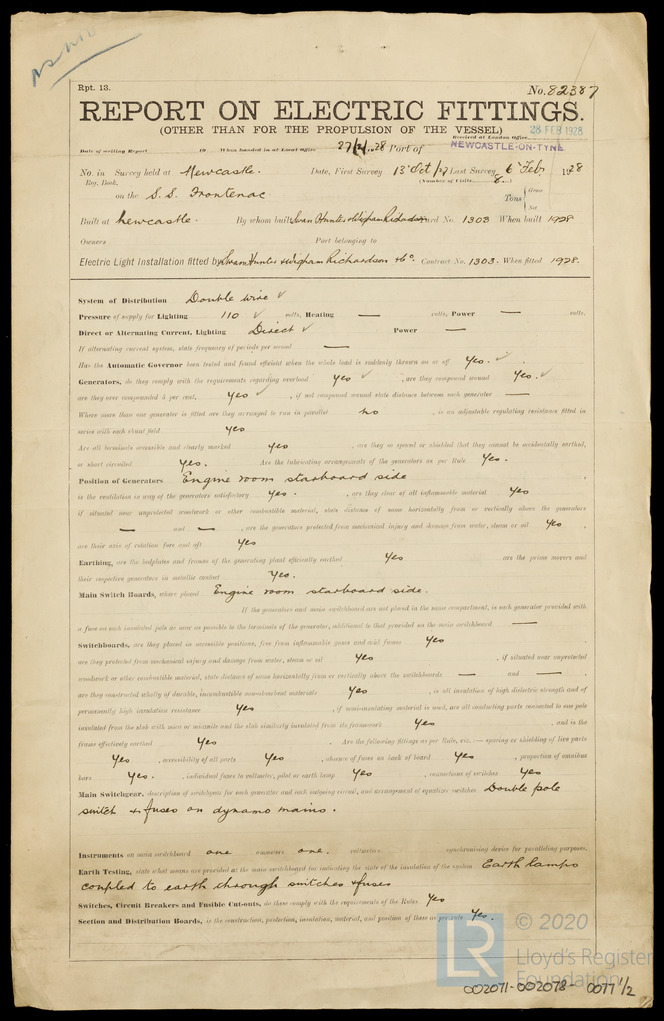 Rpt. 13.
No. 82387
REPORT ON ELECTRIC FITTINGS.
(OTHER THAN FOR THE PROPULSION OF THE VESSEL)
Received at London Office 28 FEB 1928
Date of writing Report 19 When handed in at Local Office 27/2/1928 Port of NEWCASTLE-ON-TYNE
No. in Survey held at Newcastle. Date, First Survey 13 Oct/27 Last Survey 6 Feb 1928
Reg. Book. (Number of Visits 8)
on the S.S. Frontenac Tons { Gross
Net
Built at Newcastle. By whom built Swan Hunter & Wigham Richardson Yard No. 1303 When built 1928
Owners Port belonging to
Electric Light Installation fitted by Swan Hunter & Wigham Richardson & Co. Contract No. 1303. When fitted 1928.
System of Distribution Double wire ✓
Pressure of supply for Lighting 110 ✓ volts, Heating — volts, Power — volts.
Direct or Alternating Current, Lighting Direct ✓ Power —
If alternating current system, state frequency of periods per second —
Has the Automatic Governor been tested and found efficient when the whole load is suddenly thrown on or off Yes. ✓
Generators, do they comply with the requirements regarding overload Yes ✓, are they compound wound Yes. ✓
are they over compounded 5 per cent, Yes ✓, if not compound wound state distance between each generator —
Where more than one generator is fitted are they arranged to run in parallel No, is an adjustable regulating resistance fitted in
series with each shunt field Yes
Are all terminals accessible and clearly marked Yes, are they so spaced or shielded that they cannot be accidentally earthed,
or short circuited Yes. Are the lubricating arrangements of the generators as per Rule Yes.
Position of Generators Engine room starboard side
is the ventilation in way of the generators satisfactory Yes., are they clear of all inflammable material Yes
if situated near unprotected woodwork or other combustible material, state distance of same horizontally from or vertically above the generators
— and —, are the generators protected from mechanical injury and damage from water, steam or oil Yes
are their axis of rotation fore and aft Yes
Earthing, are the bedplates and frames of the generating plant efficiently earthed Yes are the prime movers and
their respective generators in metallic contact Yes.
Main Switch Boards, where placed Engine room starboard side.
If the generators and main switchboard are not placed in the same compartment, is each generator provided with
a fuse on each insulated pole as near as possible to the terminals of the generator, additional to that provided on the main switchboard —
Switchboards, are they placed in accessible positions, free from inflammable gases and acid fumes Yes
are they protected from mechanical injury and damage from water, steam or oil Yes, if situated near unprotected
woodwork or other combustible material, state distance of same horizontally from or vertically above the switchboards — and —
are they constructed wholly of durable, incombustible non-absorbent materials Yes, is all insulation of high dielectric strength and of
permanently high insulation resistance Yes, if semi-insulating material is used, are all conducting parts connected to one pole
insulated from the slab with mica or micanite and the slab similarly insulated from its framework Yes, and is the
frame effectively earthed Yes. Are the following fittings as per Rule, viz.:— spacing or shielding of live parts
Yes, accessibility of all parts Yes, absence of fuses on back of board Yes, proportion of omnibus
bars Yes., individual fuses to voltmeter, pilot or earth lamp Yes, connections of switches Yes
Main Switchgear, description of switchgear for each generator and each outgoing circuit, and arrangement of equalizer switches Double pole
switch & fuses on dynamo mains.
Instruments on main switchboard one ammeters one. voltmeters synchronising device for paralleling purposes.
Earth Testing, state what means are provided at the main switchboard for indicating the state of the insulation of the system Earth lamps
coupled to earth through switches & fuses
Switches, Circuit Breakers and Fusible Cut-outs, do these comply with the requirements of the Rules Yes
Section and Distribution Boards, is the construction, protection, insulation, material, and position of these as per rule Yes.
LR
© 2020
Lloyd's Register
Foundation
002071-002078-0077 1/2